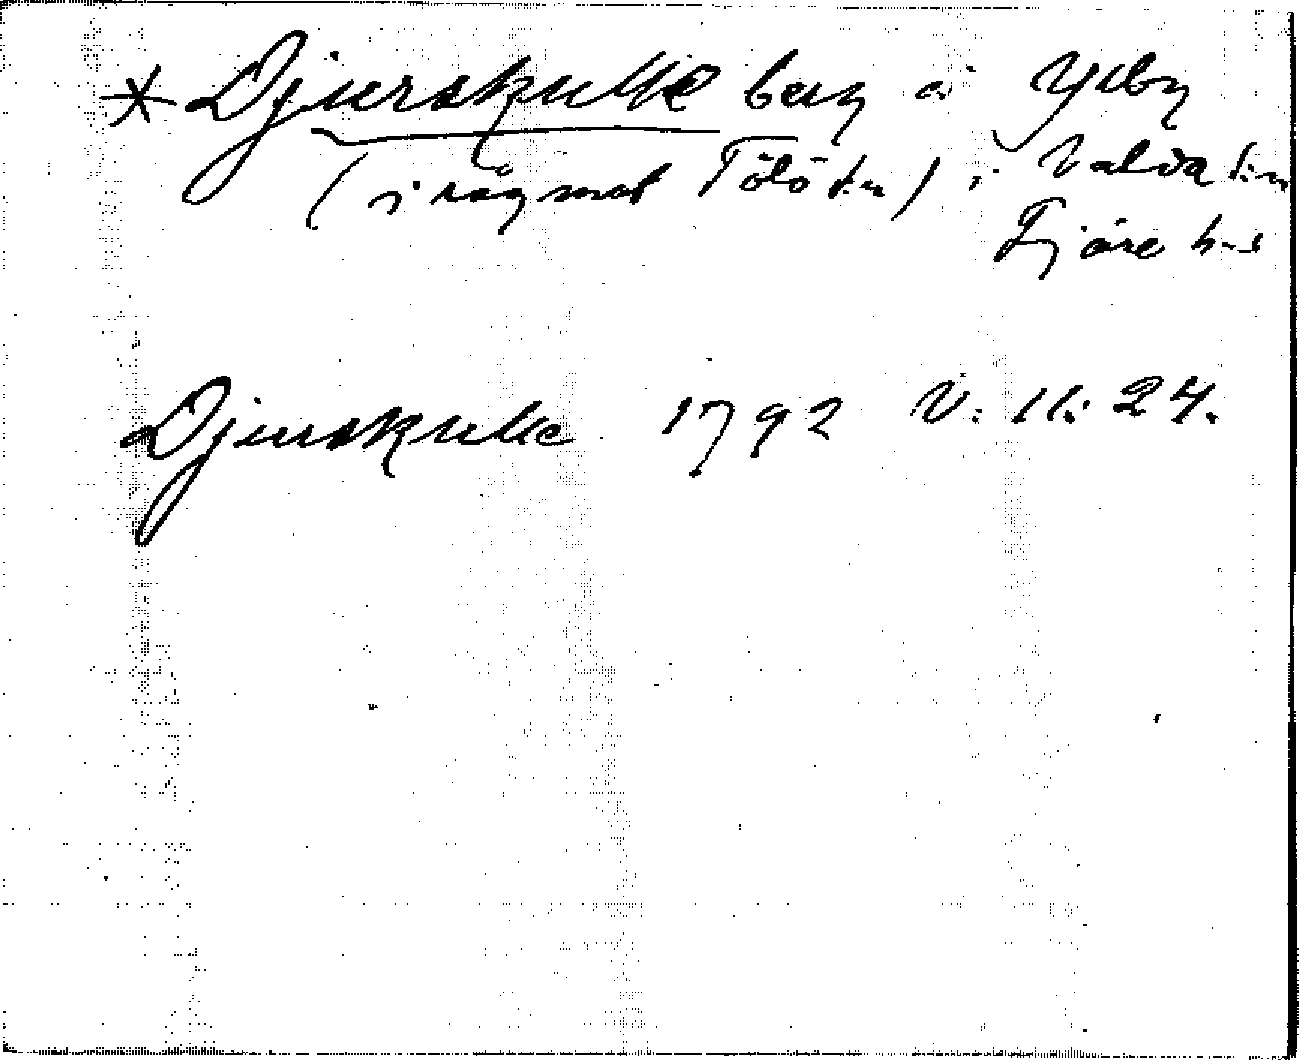 * Djurskulle berg å Yrby
(i rågmot Tölö sn) i Valda sn
Fjäre hd
Djurskulle 1792 V: 11: 24.